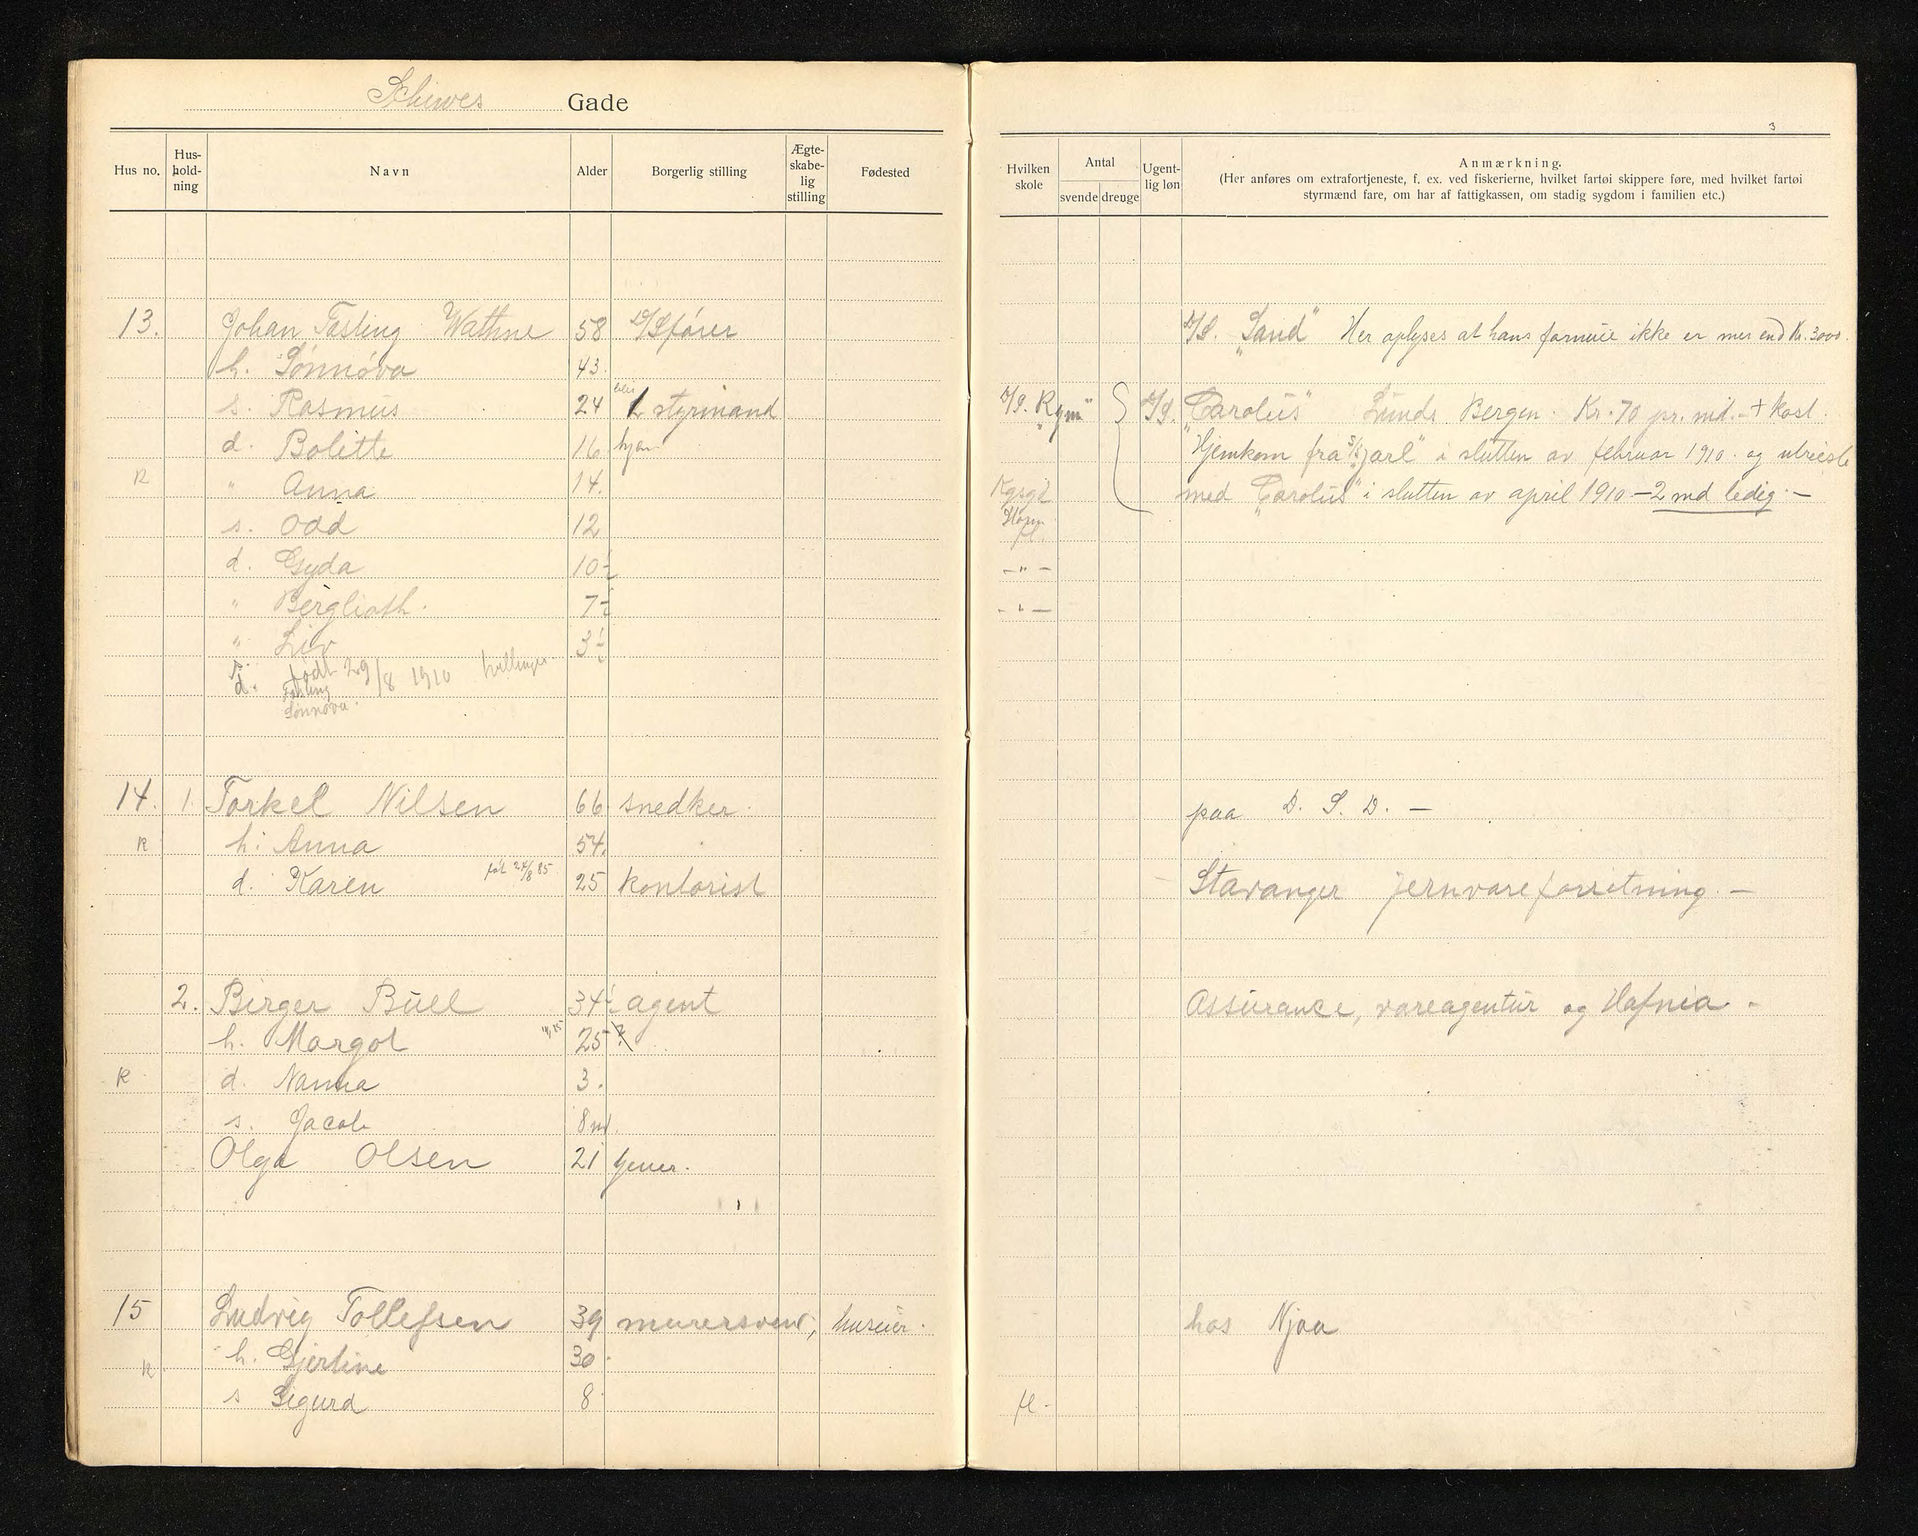 Schiwes Gade
3
Hus no. Hus-hold-ning Navn Alder Borgerlig stilling Ægte-skabe-lig stilling Fødested Hvilken skole Antal svende drenge Ugent-lig løn Anmærkning.
(Her anføres om extrafortjeneste, f. ex. ved fiskerierne, hvilket fartøi skippere føre, med hvilket fartøi
styrmænd fare, om har af fattigkassen, om stadig sygdom i familien etc.)
13. Johan Fasting Wathne 58 D/Sfører D/S. "Sand" Her oplyses at hans formue ikke er mer end Kr. 3000.
h. Sønnøva 43.
s. Rasmus 24 styrmand "Rym" D/S. "Carolus" Lunds Bergen. Kr. 70 pr. md. + kost.
d. Bolette 16 hjem Hjemkom fra S/S "Jarl" i slutten av februar 1910. og utreiste
R " Anna 14. Kgsgt med "Carolus" i slutten av april 1910 – 2 md ledig. –
s. Odd 12
d. Gyda 10½ – " –
" Berglioth. 7½ – " –
" Liv 3½
s. født 29/8 1910 tvillinger
d. Fasting
Sønnøva.
14. 1. Torkel Nilsen 66 snedker. paa D. S. D. –
R h. Anna 54.
d. Karen født 24/8 85 25 kontorist Stavanger Jernvareforretning. –
2. Birger Bull 34½ agent Assurance, vareagentur og Hafnia –
h. Margot 25
R d. Nanna 3.
s. Jacob 8 md.
Olga Olsen 21 tjener.
15 Ludvig Tollefsen 39 murersvend, huseier. hos Njaa
R. h. Gjertine 30.
s Sigurd 8. fl.